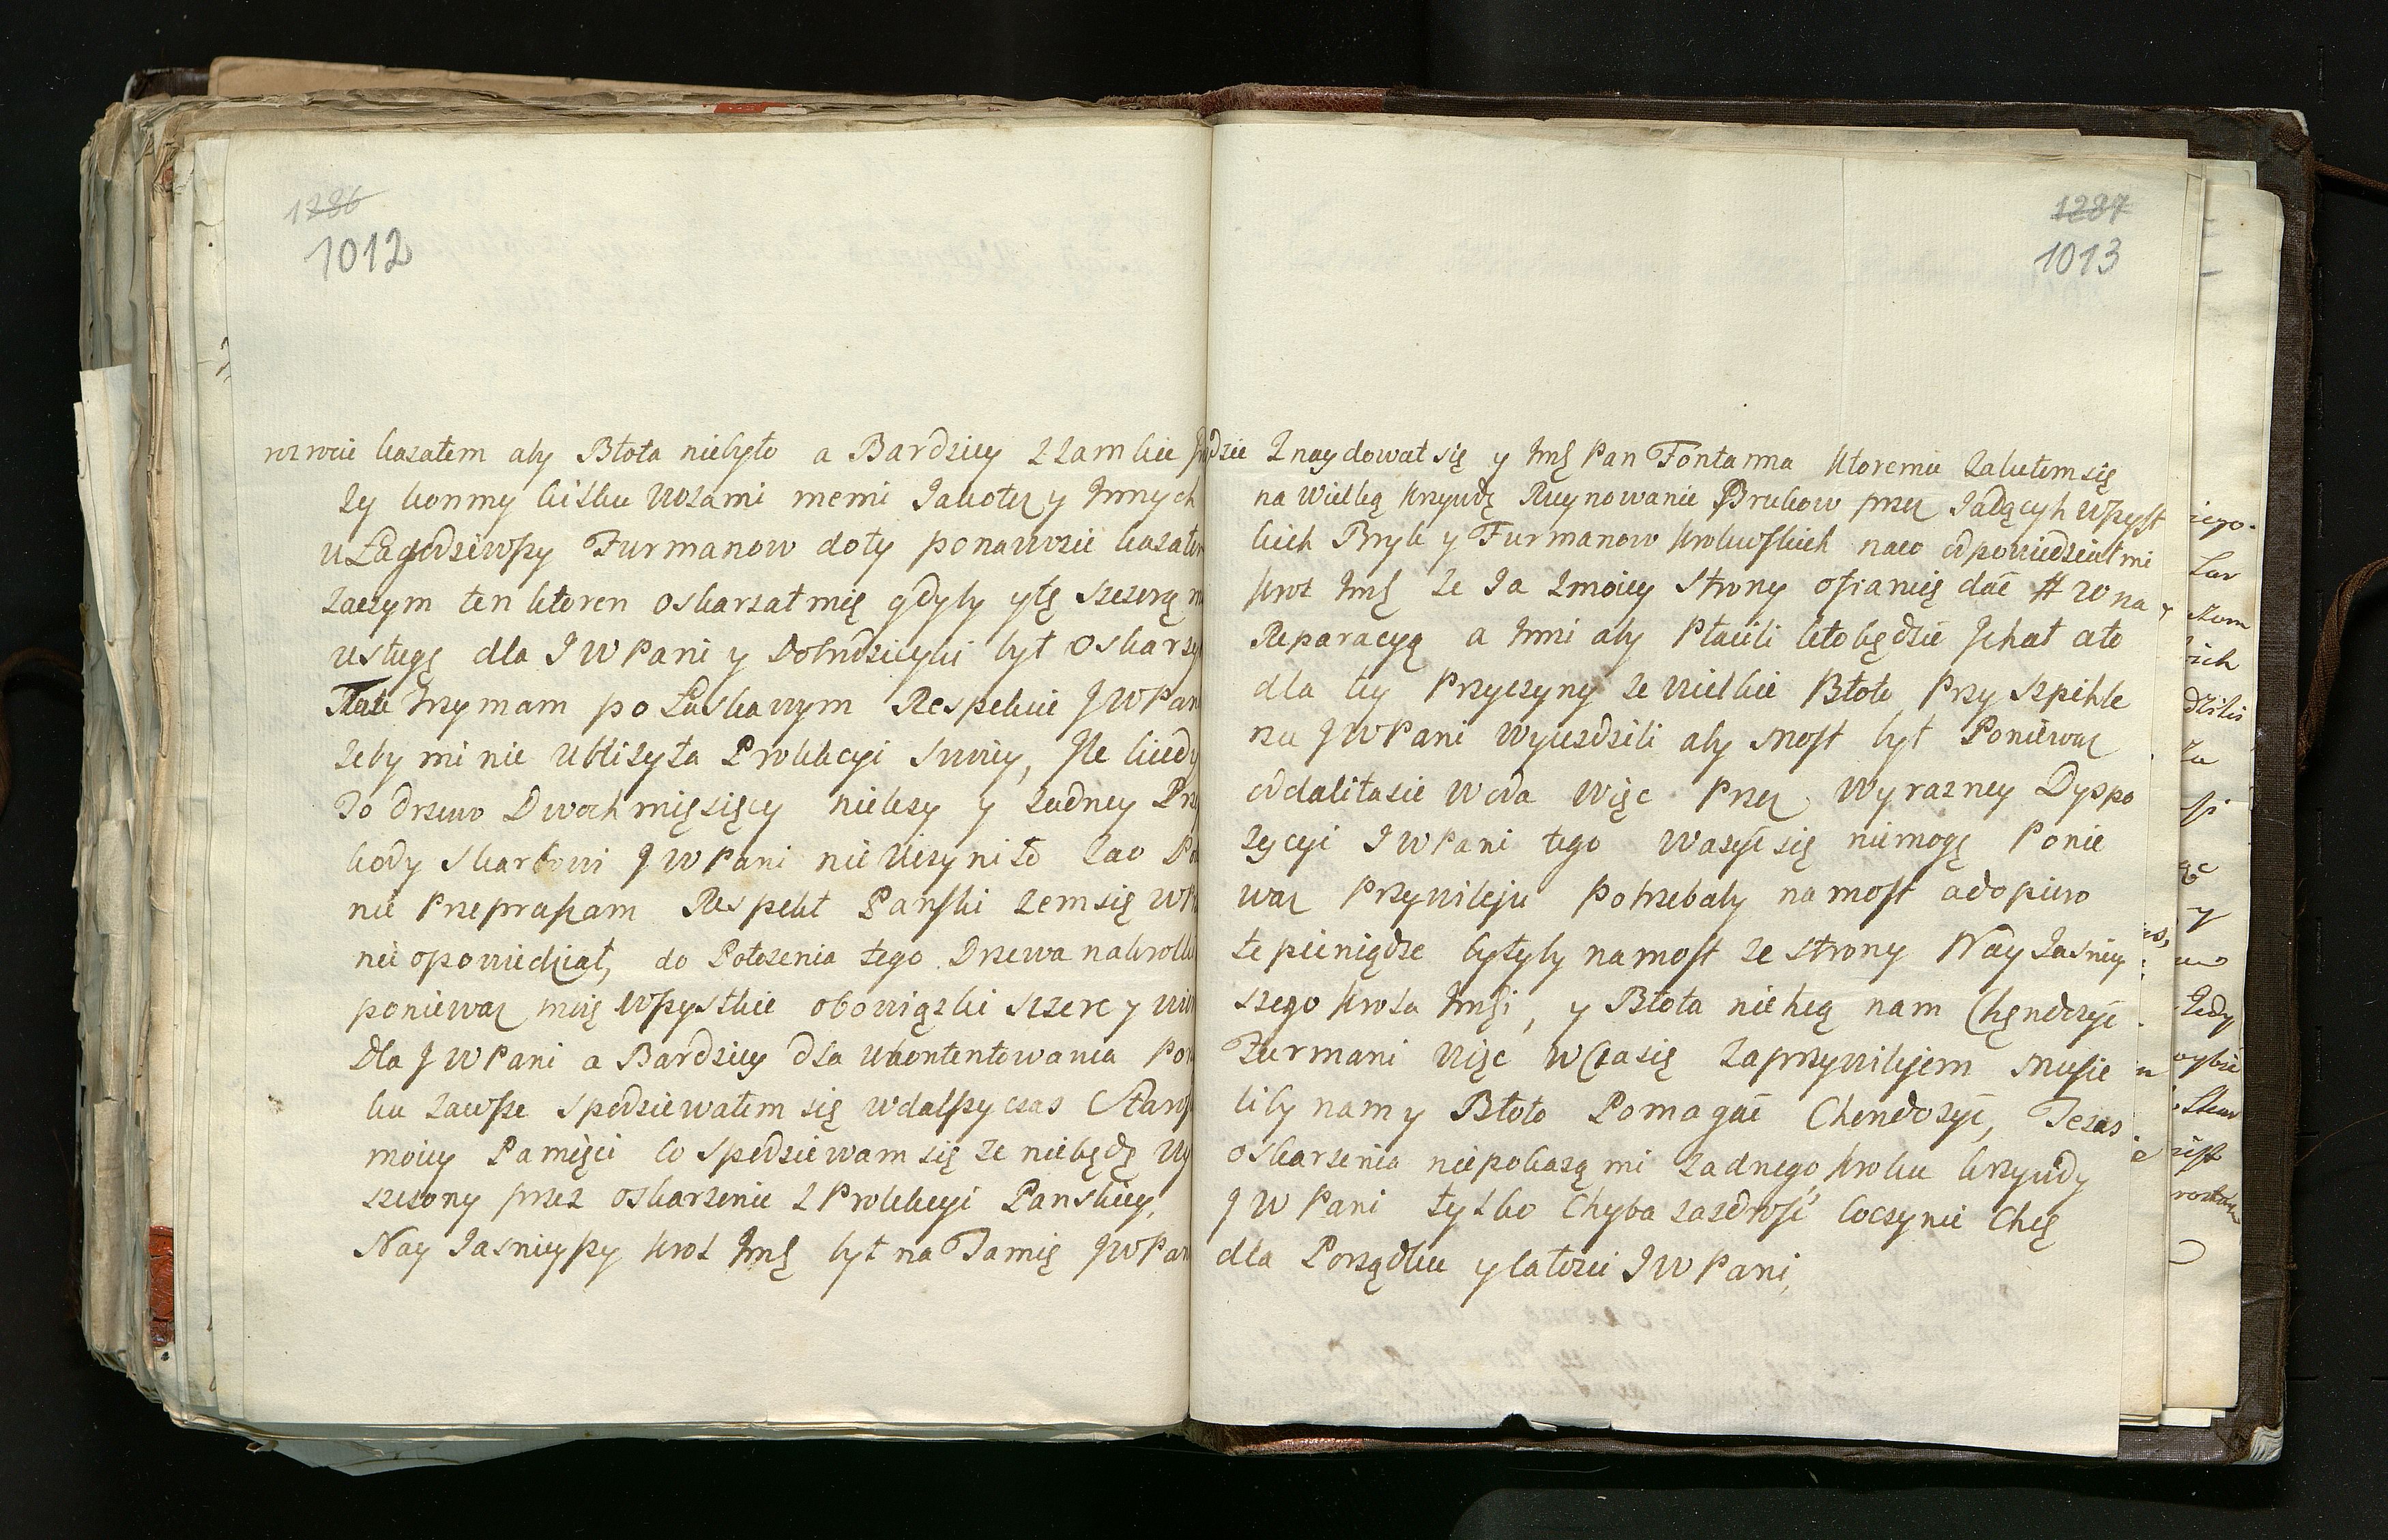 1286
1012
kazałem aby Błota niebyło a Bardziey Zzamkie
zy konmy kilku wozami memi Jakotez y Jnnych
uŁagodziwszy Furmanow doły ponawozic kazałem
zaczym ten ktoren oskarzał mię gdyby ytę szczerą
usługę dla JWPani y Dobrodzieyki był oskarzy
Tak trzymam po Łaskawym Respekcie JWPan
zeby mi nie ubliżyła Protekcyi swoiey, Jle kiedy
To drzewo Dwoch mięsięcy nielezy y zadney Prze
kody skarbowi JWPani nie Uczyniło zaco Po
nie Przepraszam Respekt Pański zemsię
nie opowiedział, do Połozenia tego Drzewa nakrotk
poniewaz moię wszystkie obowiązki szczere y
dla JWPani a Bardziey dla ukontentowania Po
ku zawsze spodziewałem się wdalszy czas
moiey Pamięci co spodziewam się ze niebędę
szczony przez oskarzenie z Protekcyi Panskiey,
Nay Jasnieyszy Krol Jmś był na Tamię JWPan
1287
1013
dzie Znaydował się y Jmś Pan Fontanna Ktoremu zaliłem się
na Wielką krzywdę Ruynowanie Brukow przez Jadących wszyst
kich Bryk y Furmanow krolewskich naco odpowiedział mi
Krol Jmś ze Ja zmoiey strony ofiaruię dać # 20 na
Reparacyą a Jnni aby Płacili ktobędzie Jchał ato
dla tey Przyczyny ze wielkie Błoto Przy szpikle
rzu JWPani Wyiezdzili aby Most był Poniewaz
oddaliłasie Woda Więc Przez Wyrazney Dyspo
zycyi JWPani tego Wazyć się niemogę Ponie
waz Przywileju Potrzebaby na most adopiero
te pieniądze byłyby na most ze strony Nay Jasniey
szego Krola Jmśi, y Błota niehcą nam Chędozyć
Furmani Więc wCzasię zaprzywilejem Musie
liby nam y Błoto Pomagać Chendozyć, Tezas
oskarzenia niepokazą mi zadnego kroku krzywdy
JWPani tylko Chyba zazdrość Coczynie Chcę
dla Porządku ycałosci JWPani,